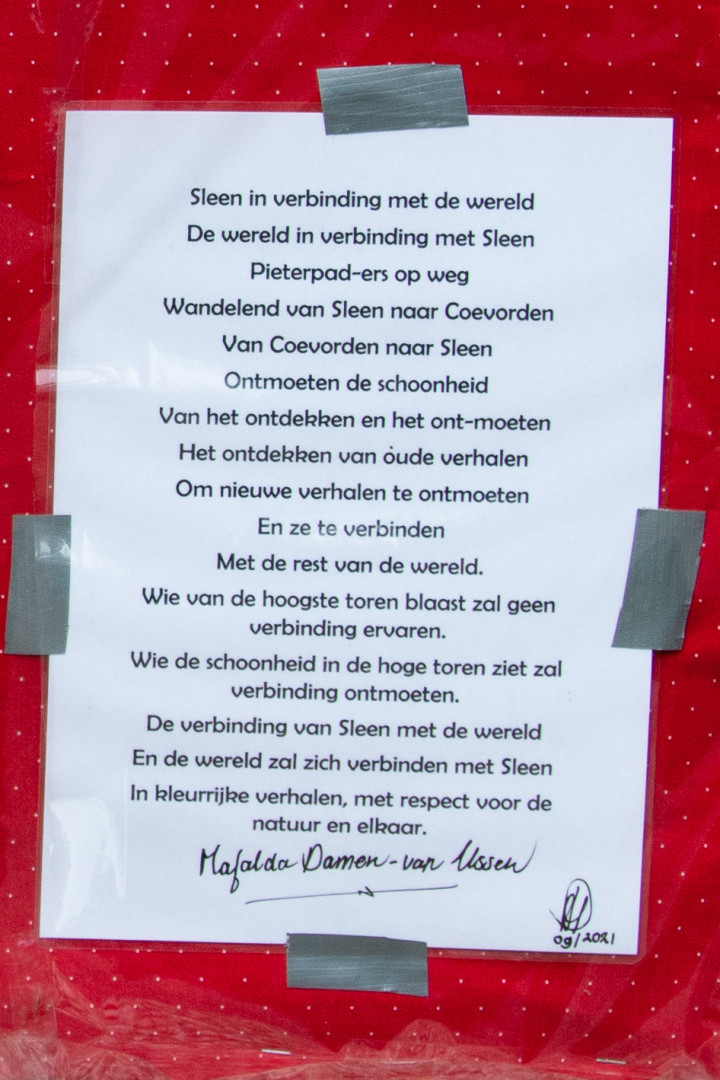 Sleen in verbinding met de wereld
De wereld in verbinding met Sleen
Pieterpad-ers op weg
Wandelend van Sleen naar Coevorden
Van Coevorden naar Sleen
Ontmoeten de schoonheid
Van het ontdekken en het ont-moeten
Het ontdekken van oude verhalen
Om nieuwe verhalen te ontmoeten
En ze te verbinden
Met de rest van de wereld.
Wie van de hoogste toren blaast zal geen
verbinding ervaren.
Wie de schoonheid in de hoge toren ziet zal
verbinding ontmoeten.
De verbinding van Sleen met de wereld
En de wereld zal zich verbinden met Sleen
In kleurrijke verhalen, met respect voor de
natuur en elkaar.
Mafalda Damen-van
09/2021